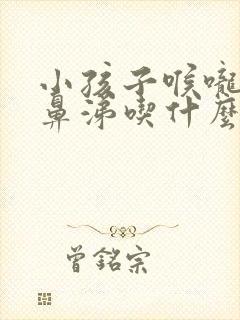 小孩子喉嚨
鼻涕喫什麼
曾銘宗